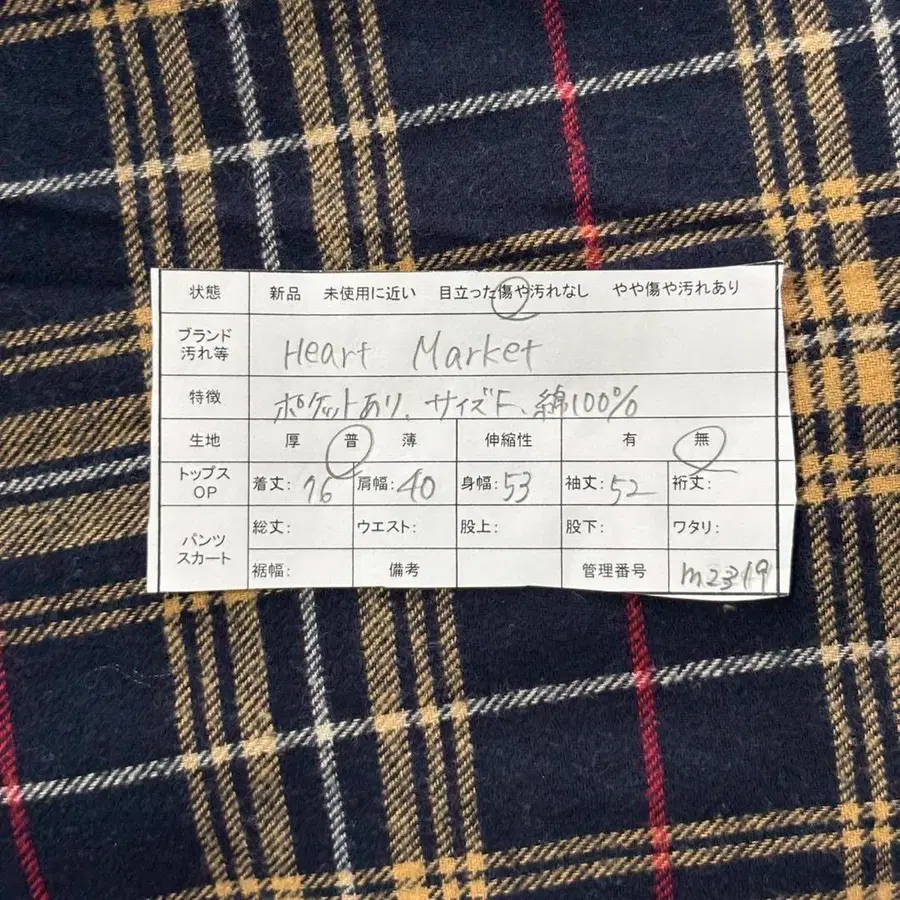 状態 新品 未使用に近い 目立った傷や汚れなし やや傷や汚れあり
ブランド 汚れ等 Heart Market
特徴 ポケットあり、サイズF、綿100%
生地 厚 普 薄 伸縮性 有 無
トップス OP 着丈: 76 肩幅: 40 身幅: 53 袖丈: 52 裄丈:
パンツ スカート 総丈: ウエスト: 股上: 股下: ワタリ:
裾幅: 備考 管理番号 m2319